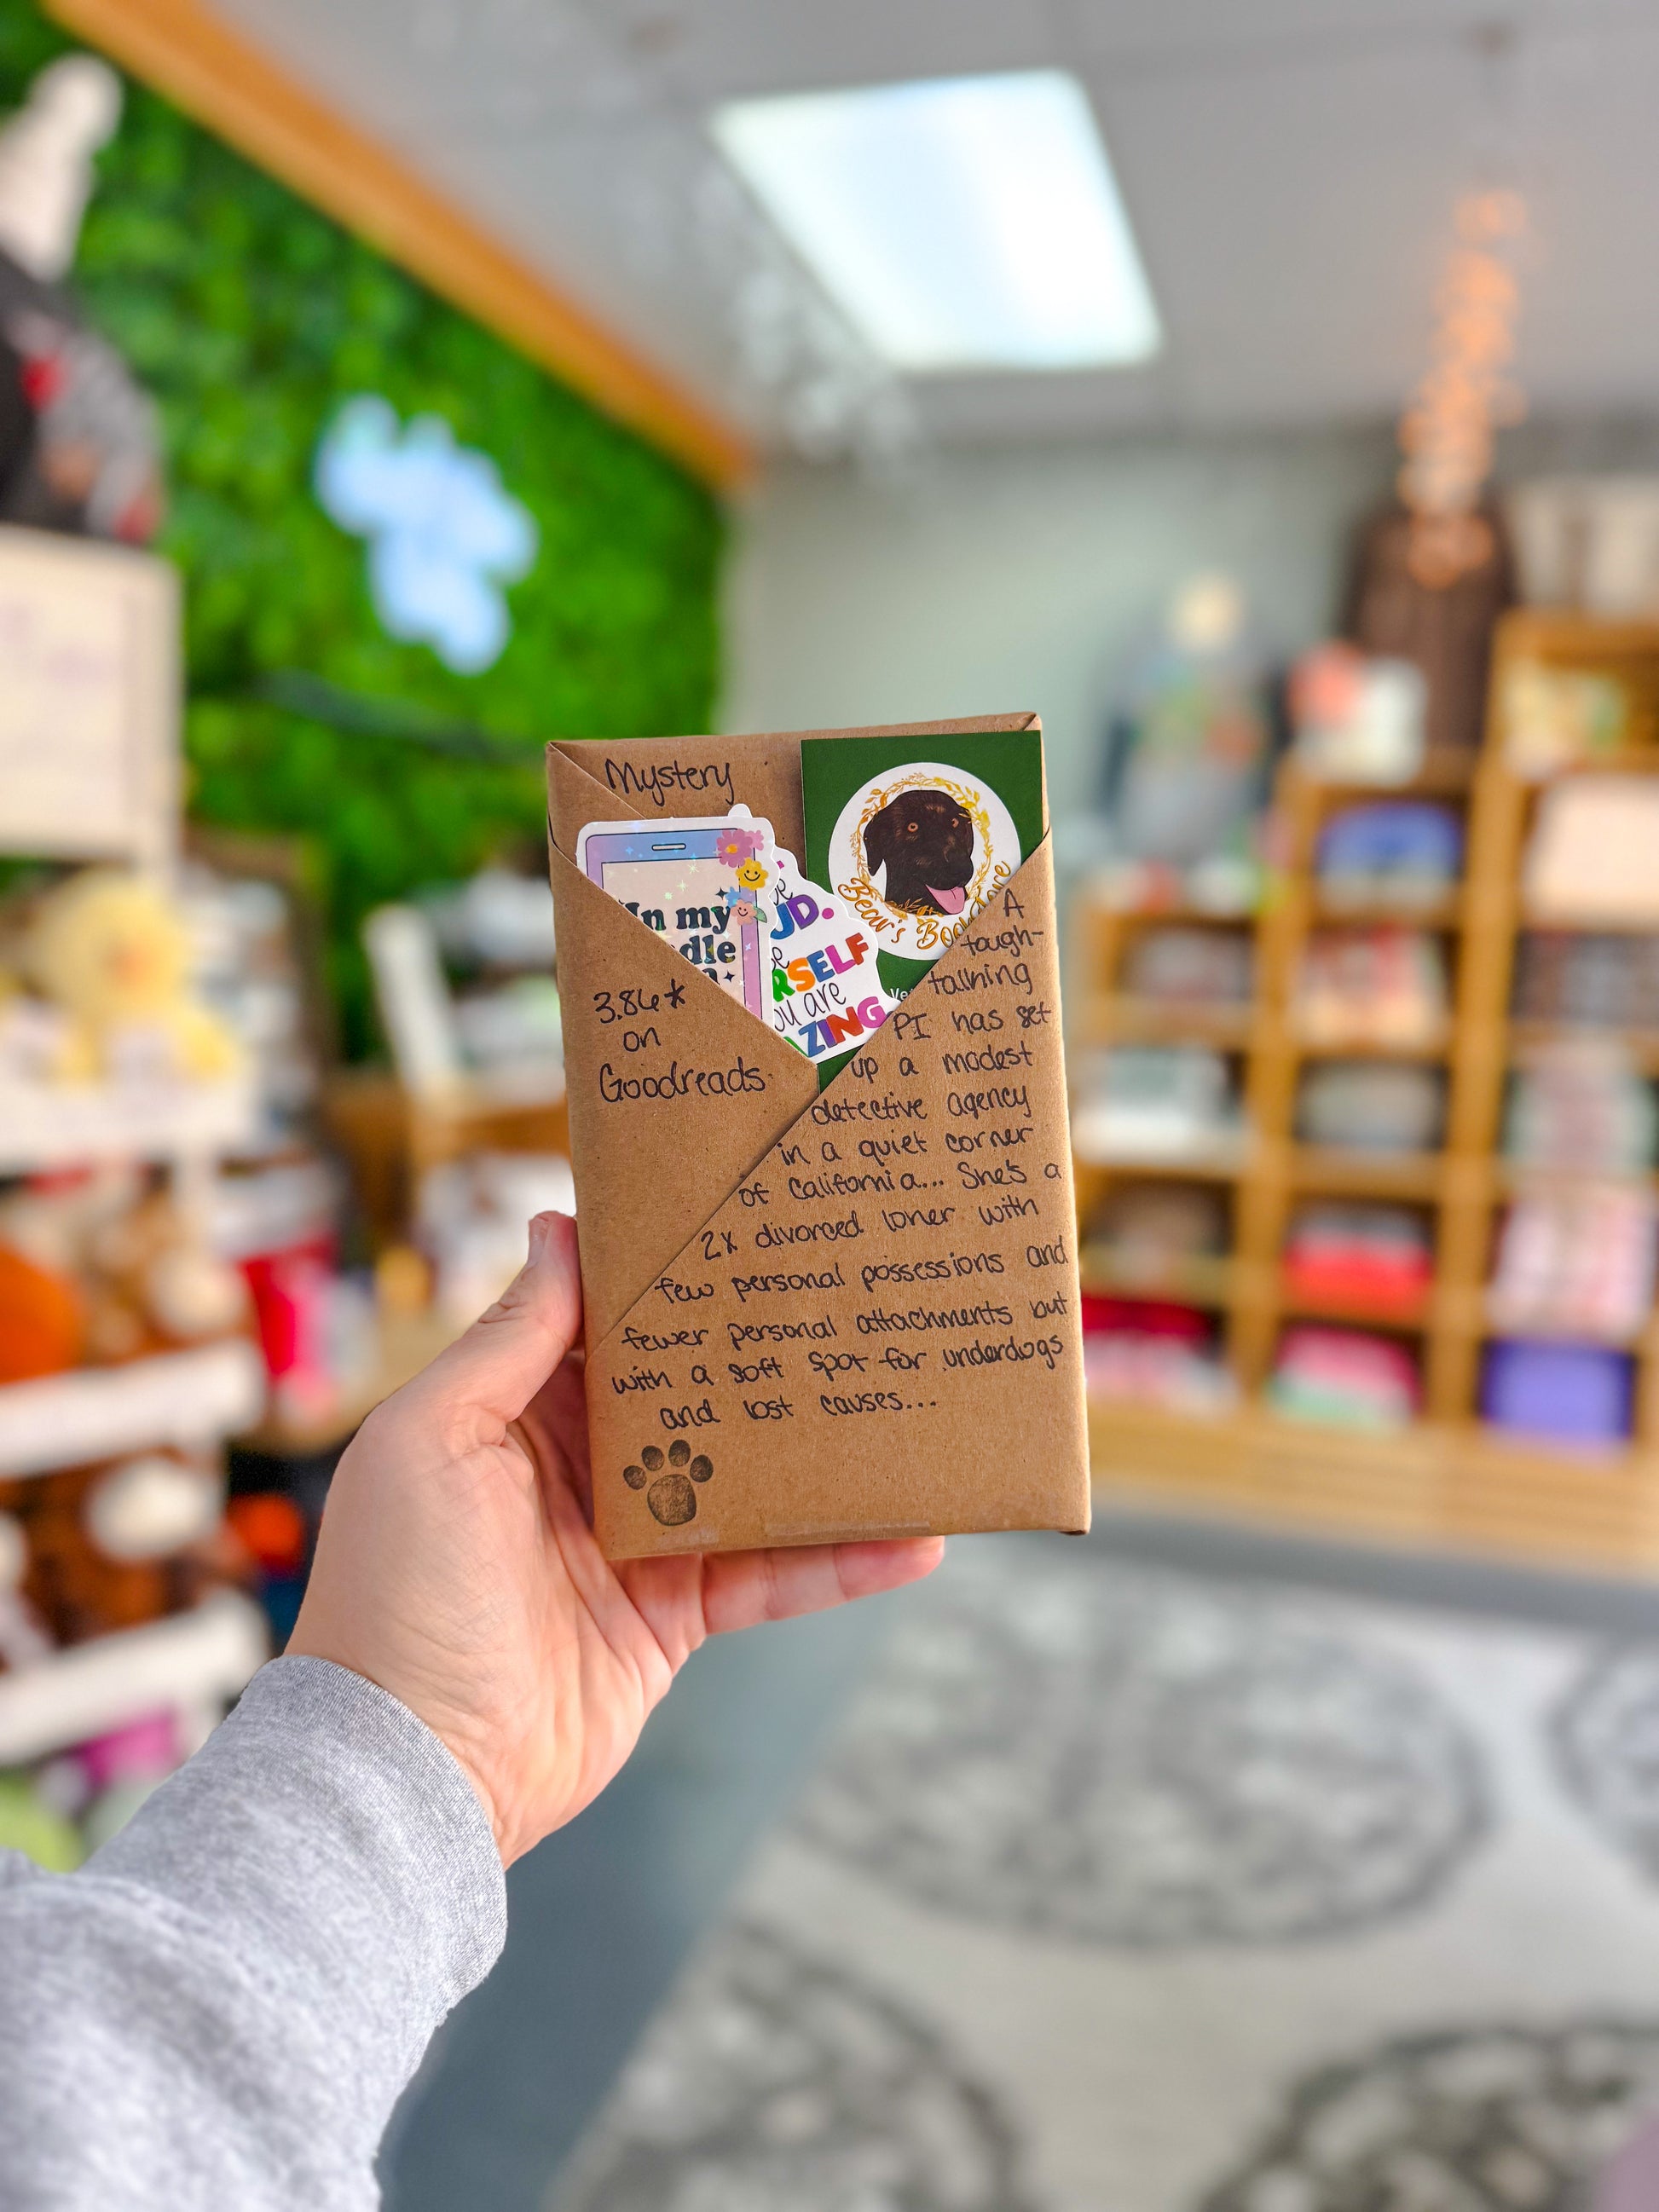 Mystery
In my
dle
UD.
RSELF
ou are
ZING
Bear's Bookstore
3.86*
on
Goodreads.
A
tough-
talking
PI has set
up a modest
detective agency
in a quiet corner
of California... She's a
2x divorced loner with
few personal possessions and
fewer personal attachments but
with a soft spot for underdogs
and lost causes...